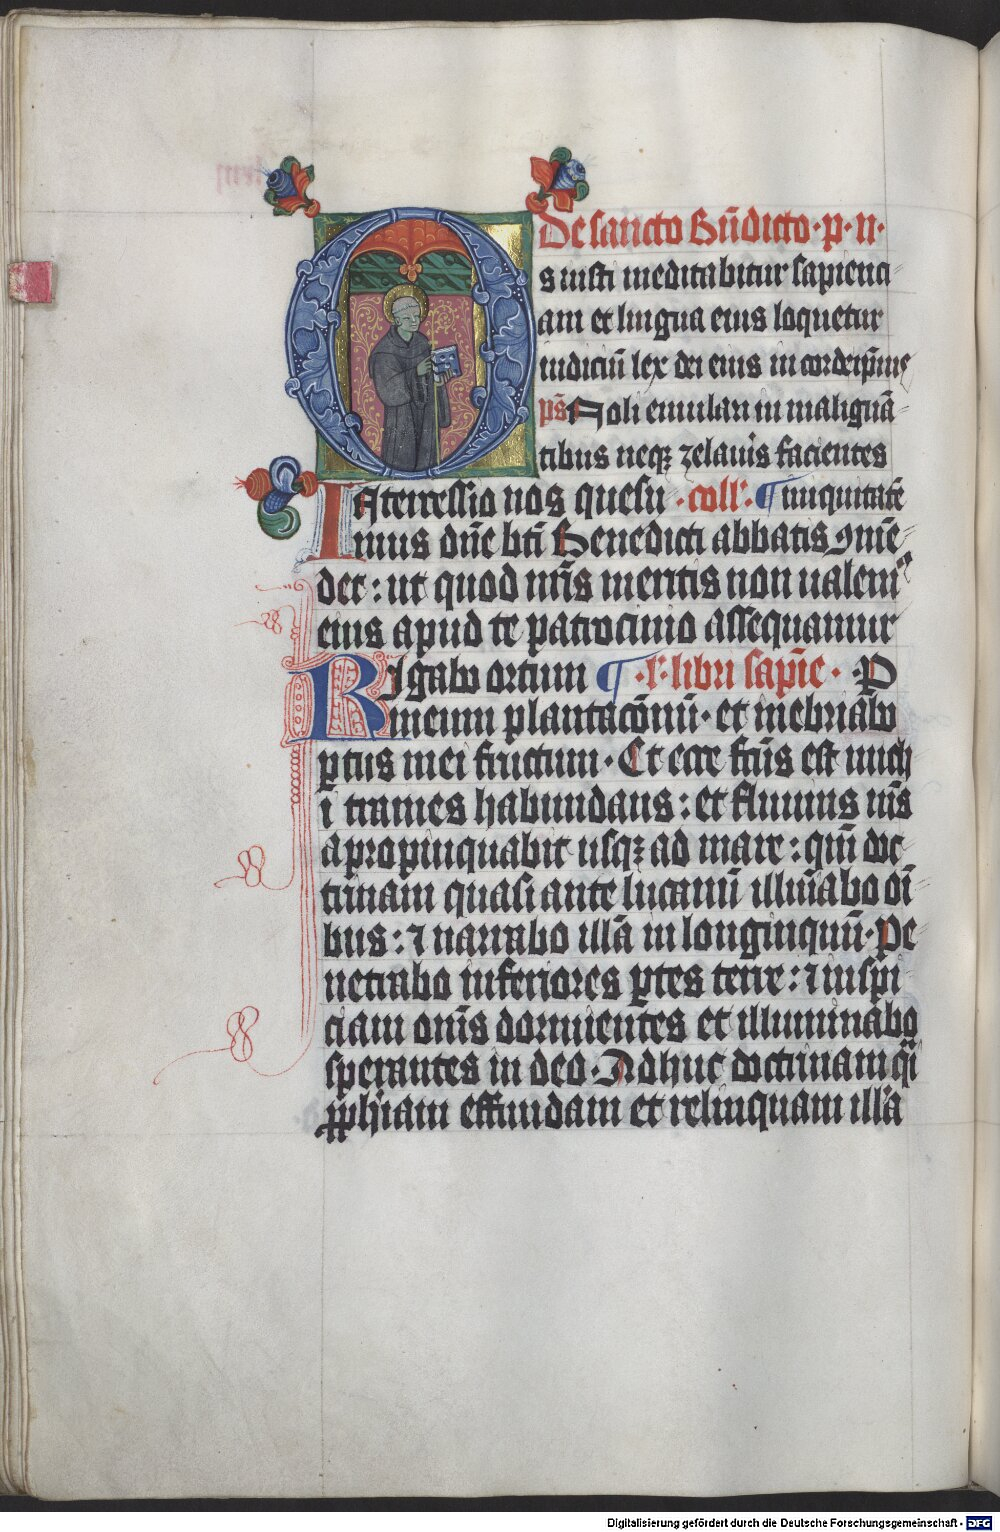 De sancto Bn̄dicto · p · n ·
Os iusti meditabitur sapienti
am et lingua eius loquetur
iudiciū lex dei eius in corde ip̄ius
ps̄ Noli emulari in malignā
tibus neqꝫ zelaūis facientes
Intercessio nos quesu · coll' · ¶ iniquitatē
mus dn̄e bt̄i Benedicti abbatis ꝯmē
det : ut quod nr̄is meritis non ualem⁹
eius apud te patrocinio assequamur
Rigabo ortum ¶ · l' · libri sapīe · · P
meum plantac̄onū · et inebriabo
ꝑtus mei fructum · Et ecce fc̄us est mich
i trames habundans : et fluuius m̄s
apropinquabit usqꝫ ad mare : qm̄ doc
trinam quasi ante lucanū illuīabo oī
bus : ⁊ narrabo illā in longinquū · Pe
netrabo inferiores ꝑtes terre : ⁊ inspi
ciam om̄s dormientes et illuminabo
sperantes in deo · Adhuc doctrinam q̄i
ꝓph̄iam effundam et relinquam illā
Digitalisierung gefördert durch die Deutsche Forschungsgemeinschaft - DFG